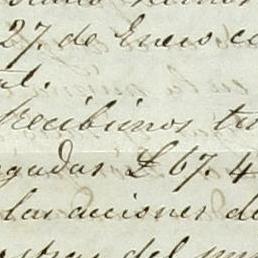 27. de Enero c
al.
Recibimos tr
gadas £ 67. 4
las acciones de
del